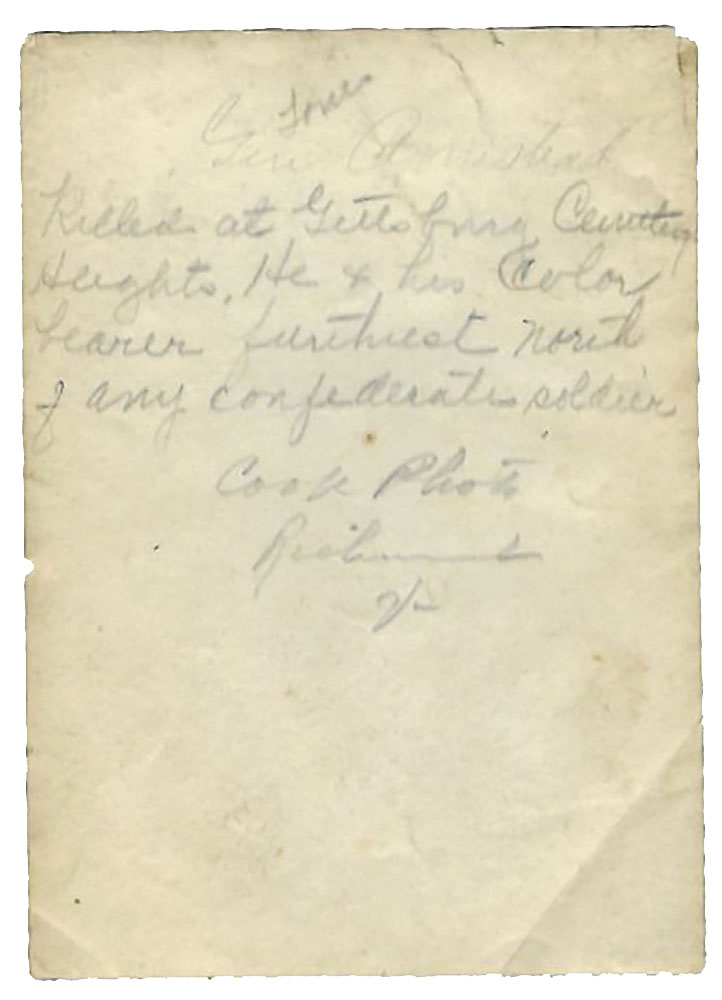 Louis
Gen Armistead
Killed at Gettsburg Cemetery
Heights, He & his Color
bearer furthrest north
of any confederate soldier
Cook Photo
Richmond
Va